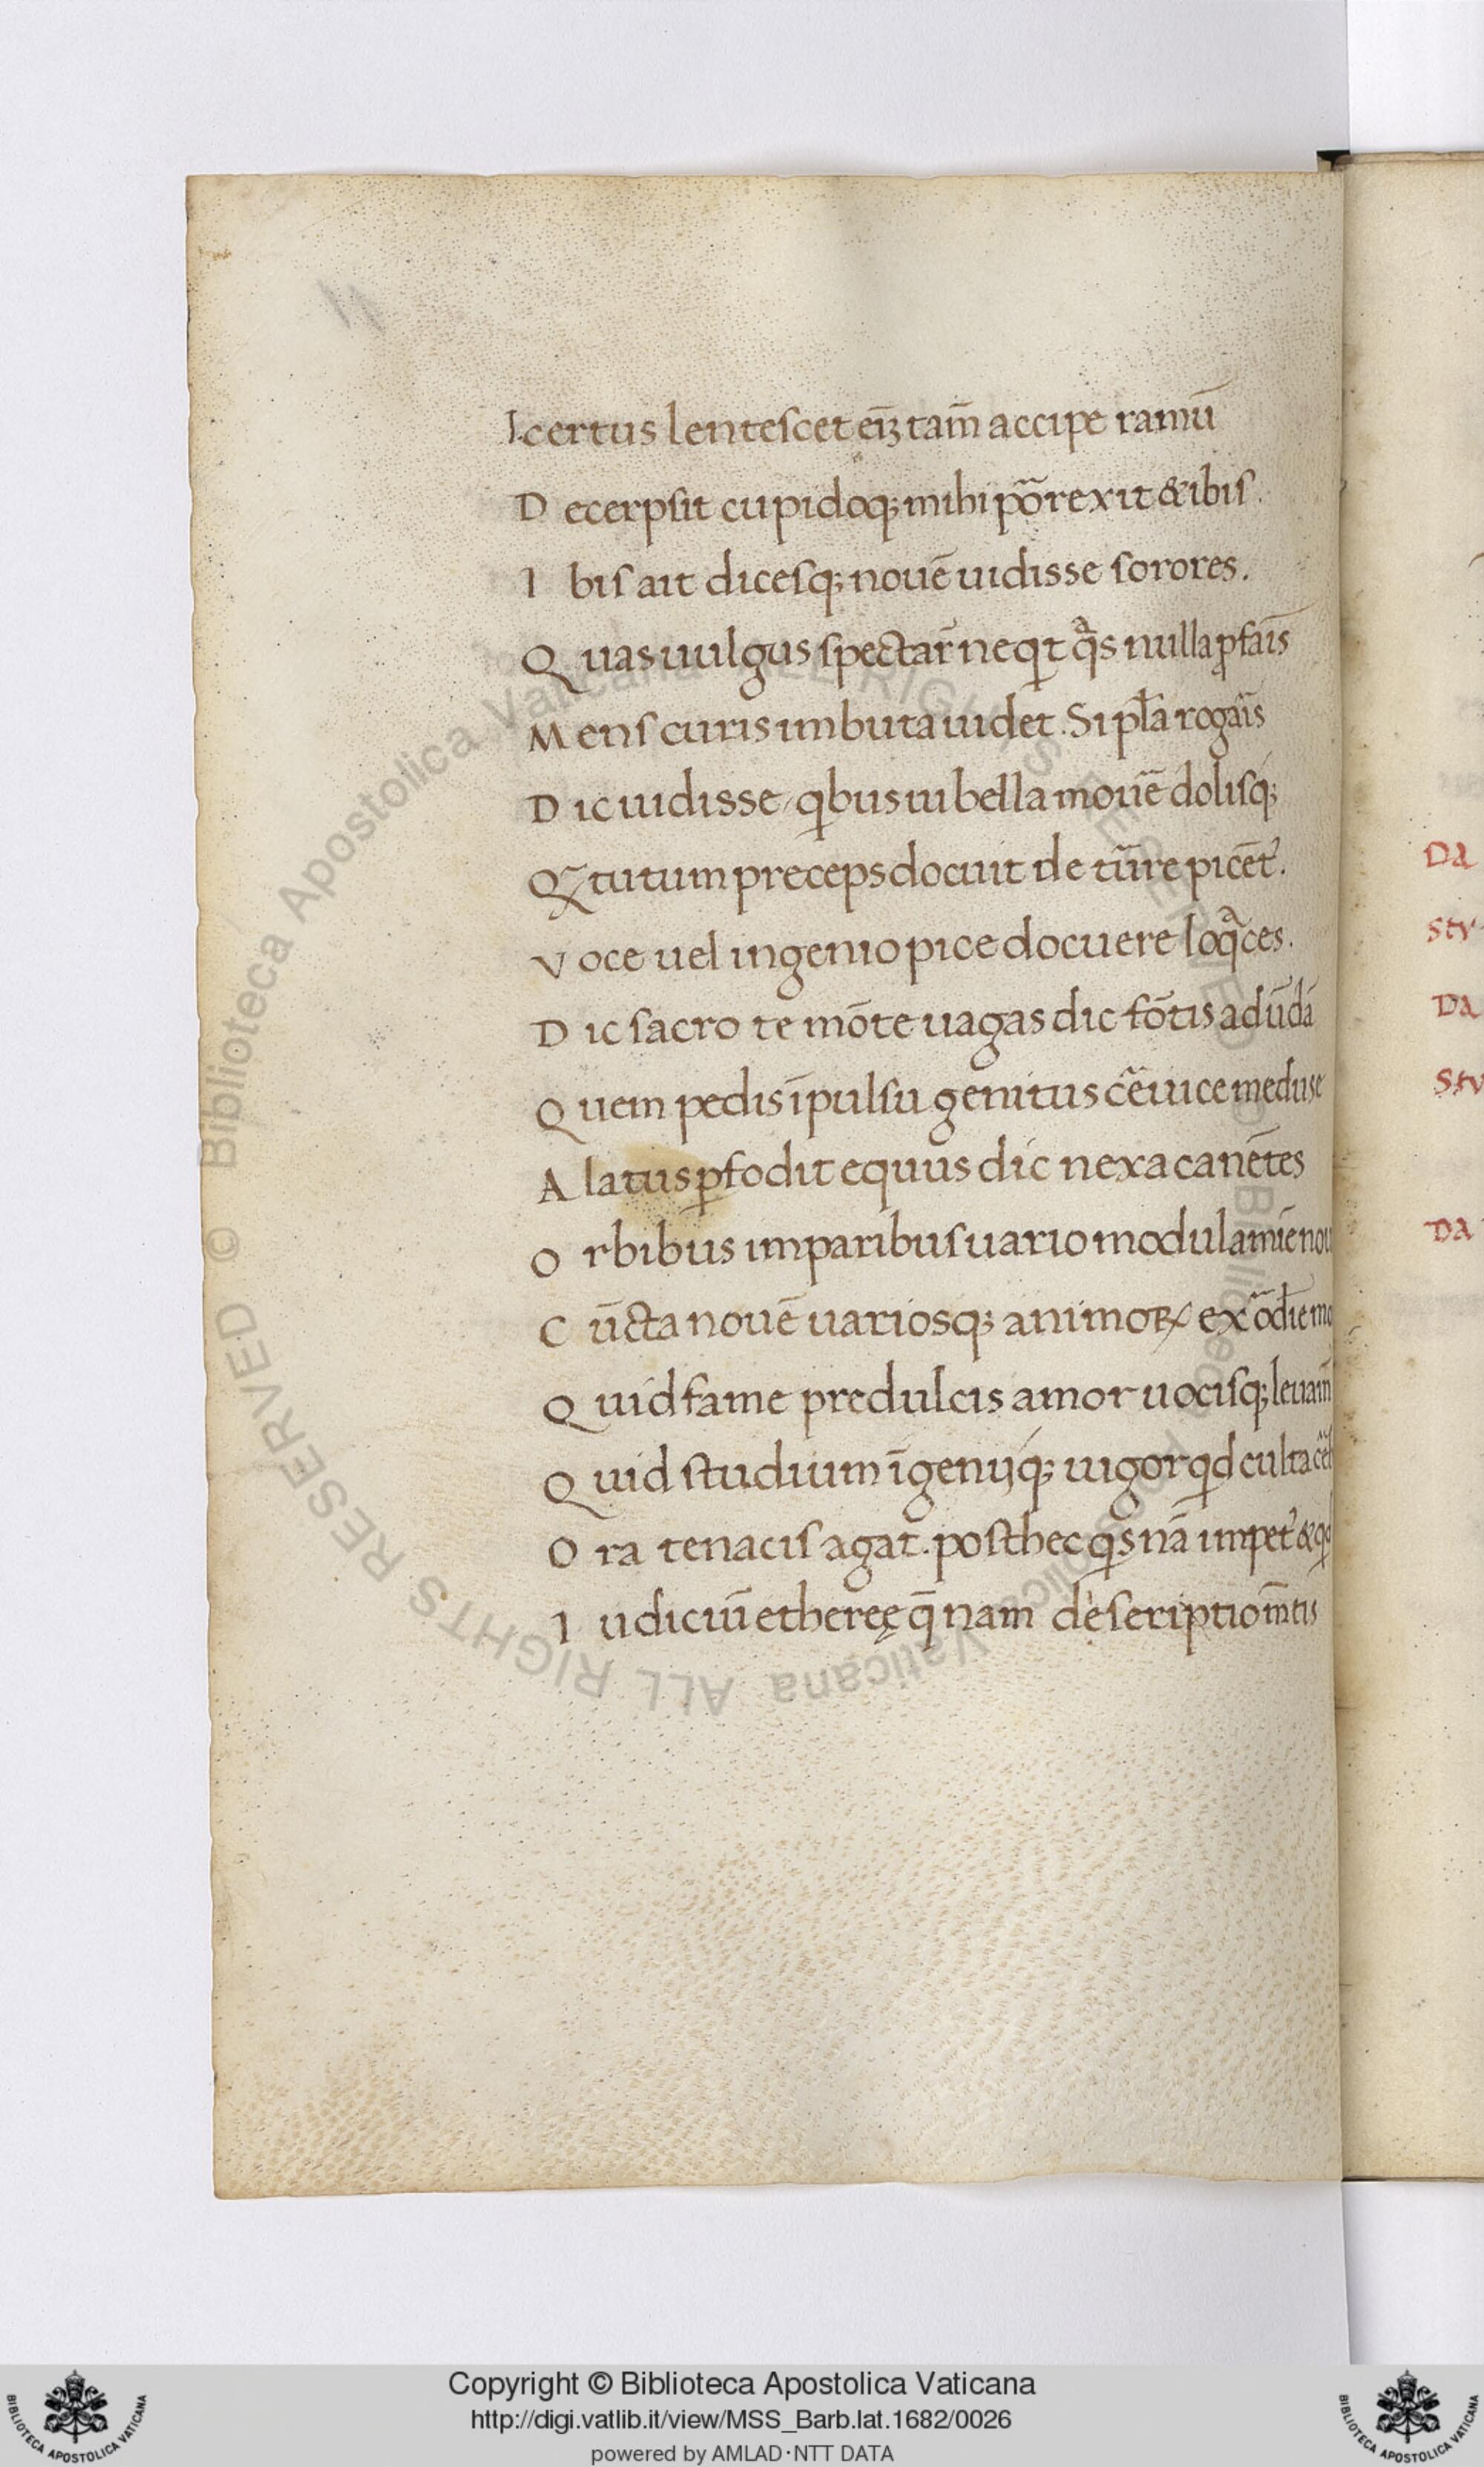 I certus lentescet eīȝ tam̄ accipe ramū
D ecerpsit cupidoq; mihi porexit & ibis.
I bis ait dicesq; nouē uidisse sorores.
Q uas uulgus spectar̄ neqit qͣs nulla ꝓfaīs
M ens curis imbuta uidet. Si pl̄a rogaīs
D ic uidisse, qbus iu bella mouē dolisq;
Qꝝ tutum preceps docuit de tūre picēt.
V oce uel ingenio pice docuere loqͣces.
D ic sacro te mōte uagas dic fōtis ad ūdā
Q uem pedis īpulsu genitus cēuice meduse
A latus ꝑfodit equus dic nexa canētes
O rbibus imparibus uario modulamīe nou
C ūcta nouē uariosq; animoꝝ exodīe mo
Q uid fame predulcis amor uocisq; leuam̄
Q uid studium īgenijq; uigor qd culta
O ra tenacis agat. post hec qs nā impet &
I udiciū ethereę q̄ nam descriptio m̄tis
DA
STV
DA
STV
DA
Copyright © Biblioteca Apostolica Vaticana
http://digi.vatlib.it/view/MSS_Barb.lat.1682/0026
powered by AMLAD·NTT DATA
BIBLIOTECA APOSTOLICA VATICANA
BIBLIOTECA APOSTOLICA VATICANA
© Biblioteca Apostolica Vaticana ALL RIGHTS RESERVED © Biblioteca Apostolica Vaticana ALL RIGHTS RESERVED